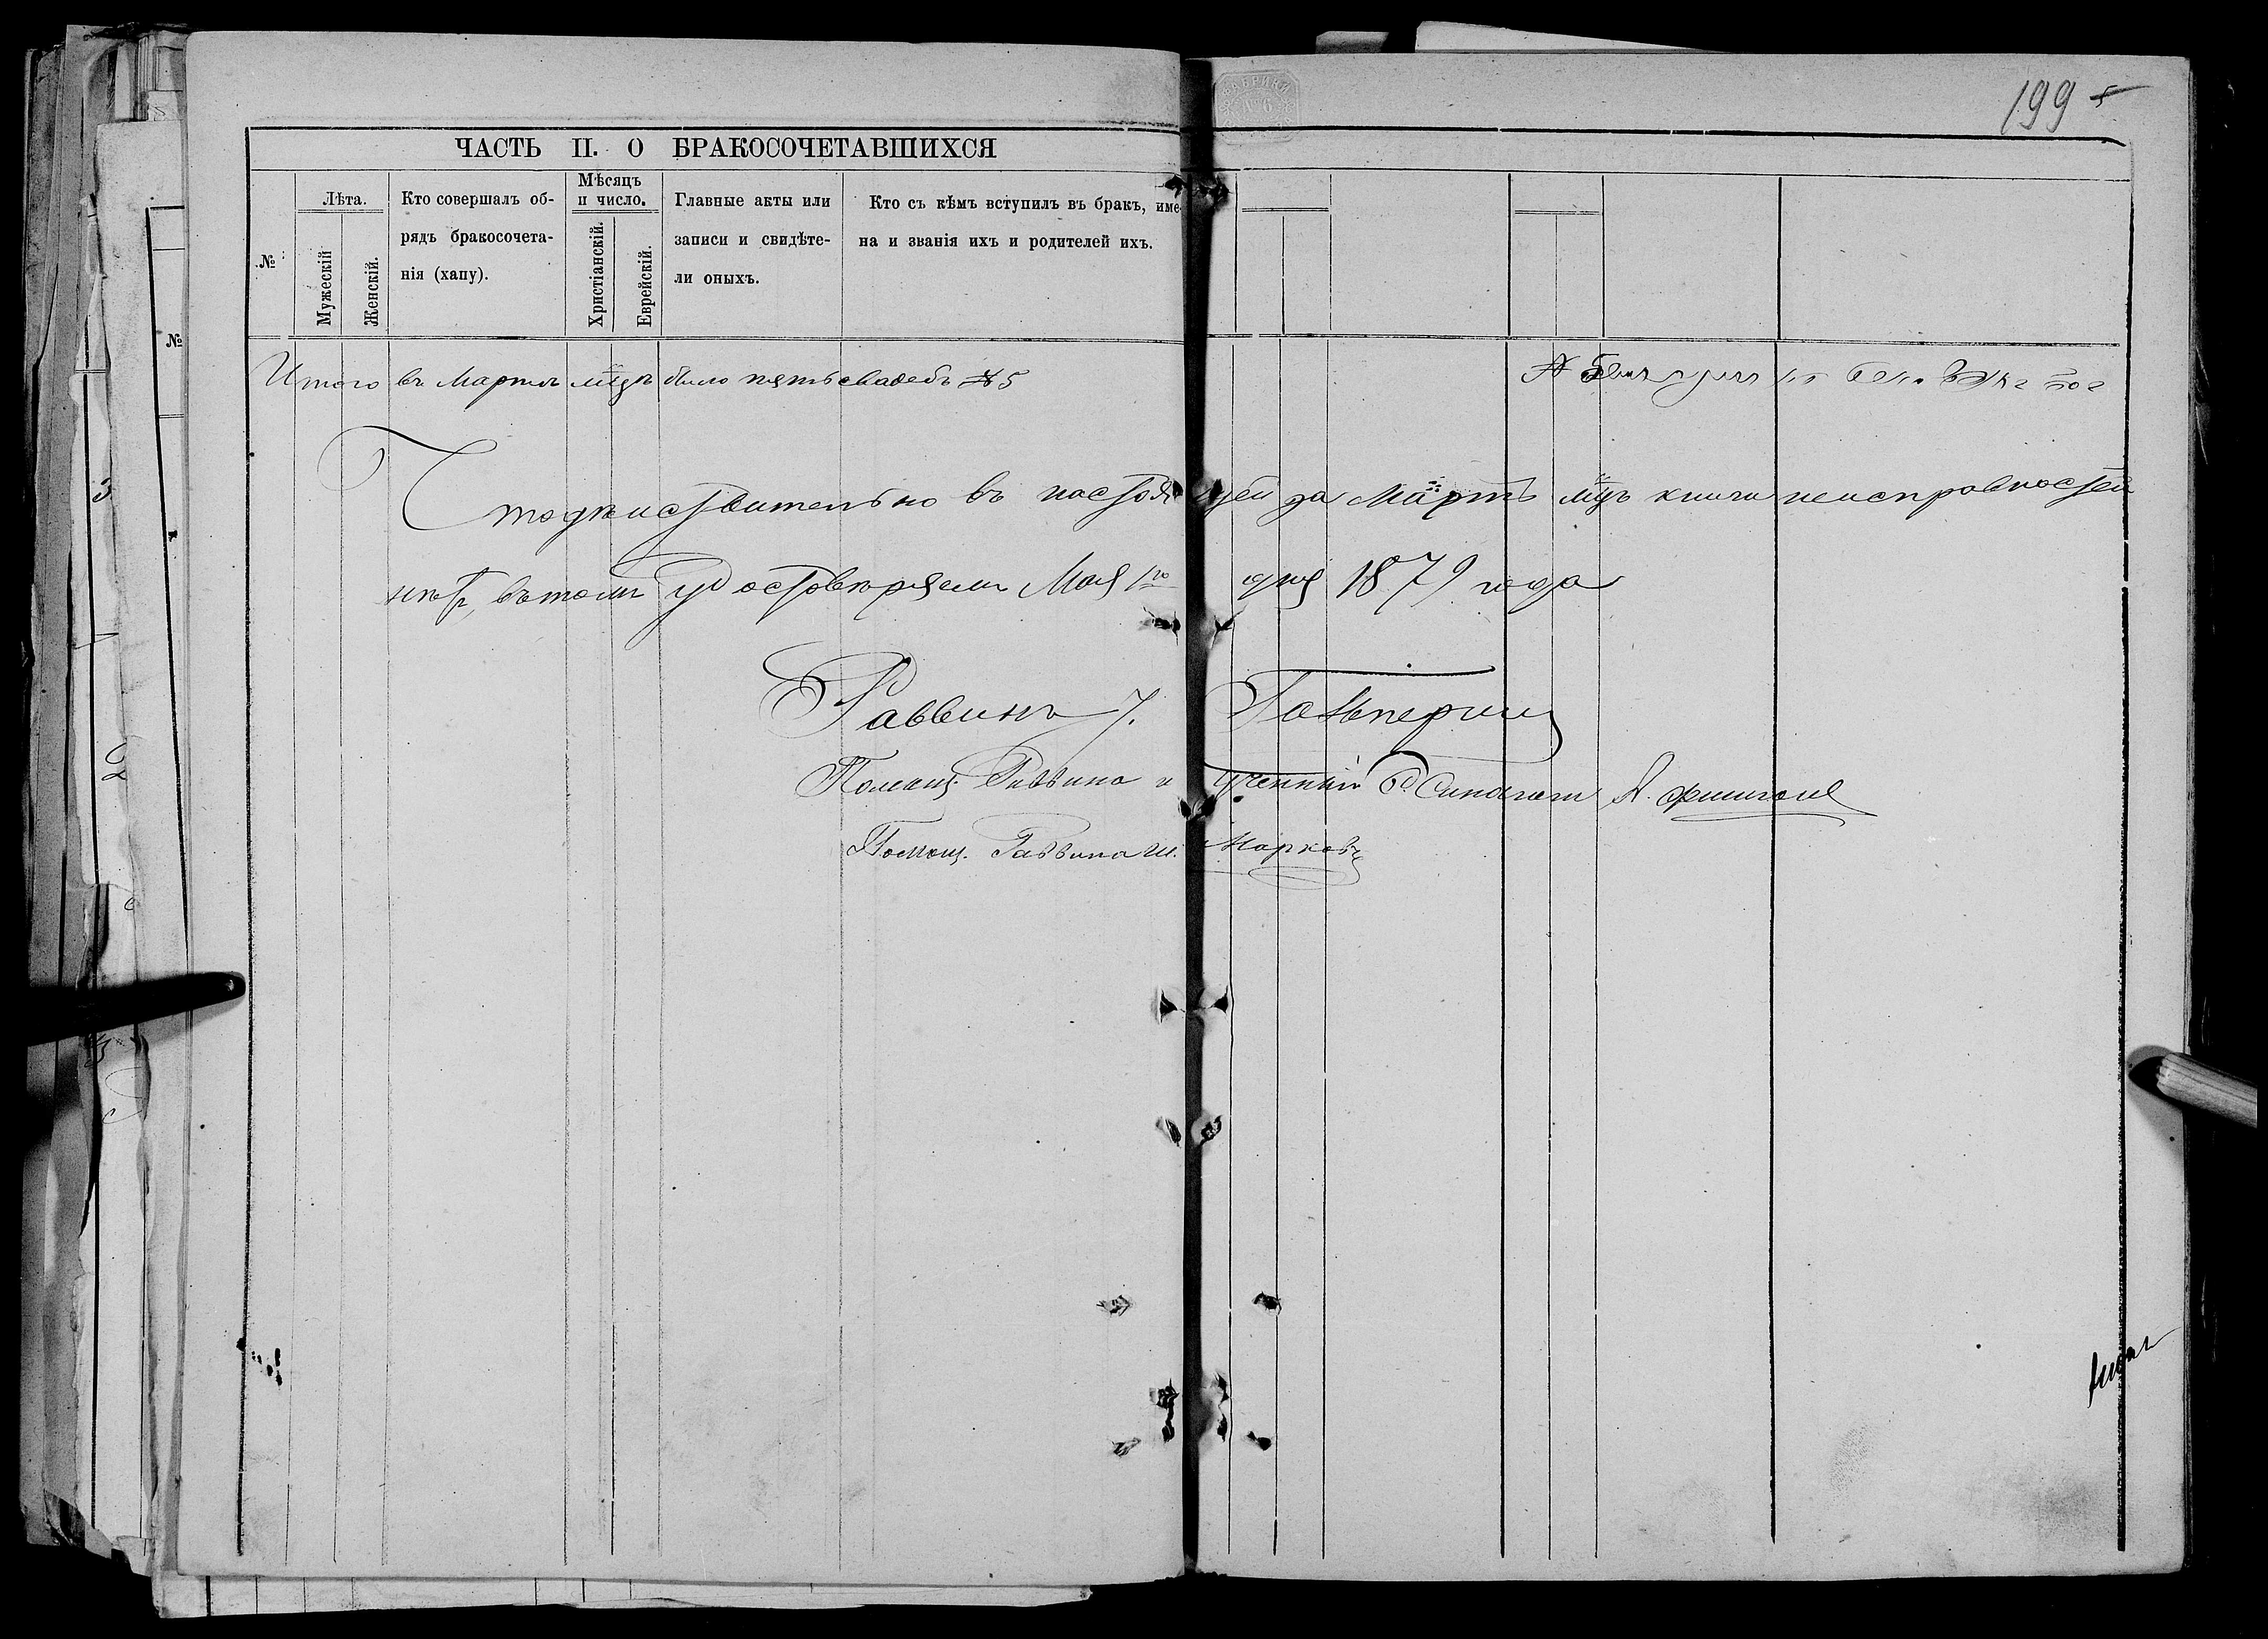 199 5
ФАБРИКИ
№ 6
ЧАСТЬ II. О БРАКОСОЧЕТАВШИХСЯ
№
Лѣта.
Мужескій
Женскій.
Кто совершалъ об-
рядъ бракосочета-
нія (хапу).
Мѣсяцъ
и число.
Христіанскій.
Еврейскій.
Главные акты или
записи и свидѣте-
ли оныхъ.
Кто съ кѣмъ вступилъ въ бракъ, име-
на и званія ихъ и родителей ихъ.
№
Итого въ Мартѣ мцѣ было пять свадебъ № 5
Что дѣйствительно въ настоящей за Мартъ мцъ книги неисправностей
нѣтъ, въ томъ удостовѣряемъ Мая 1го дня 1879 года
Раввинъ Гальперинъ
Помощ. Раввина и ученный Синагоги
Помощ. Раввина Ш. Марковъ